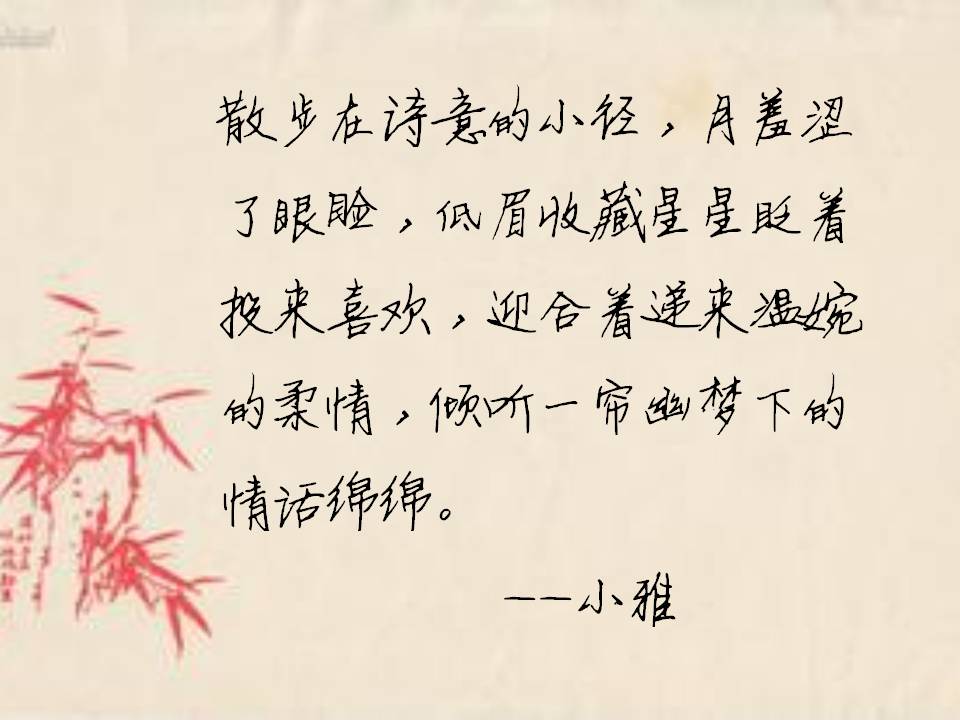 散步在诗意的小径，月羞涩
了眼睑，低眉收藏星星眨着
投来喜欢，迎合着递来温婉
的柔情，倾听一帘幽梦下的
情话绵绵。
——小雅